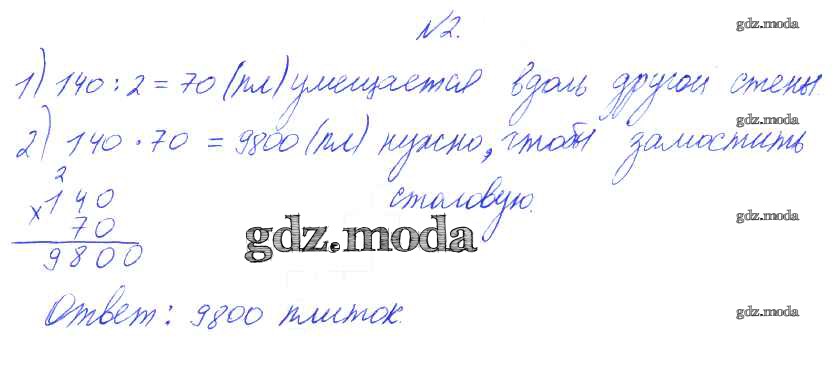 №2.
gdz.moda
1) 140 : 2 = 70 (пл) умещается вдоль другой стены.
gdz.moda
2) 140 · 70 = 9800 (пл) нужно, чтобы замостить
2
×140
столовую.
gdz.moda
70
gdz.moda
9800
Ответ: 9800 плиток.
gdz.moda